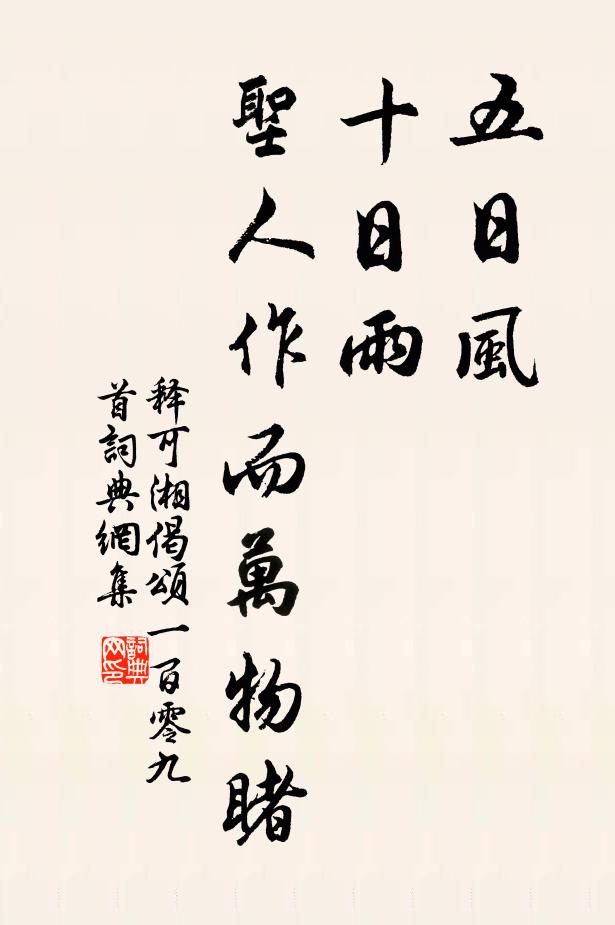 五日風
十日雨
聖人作而萬物睹
释可湘偈頌一百零九
首詞典網集
詞典
网印